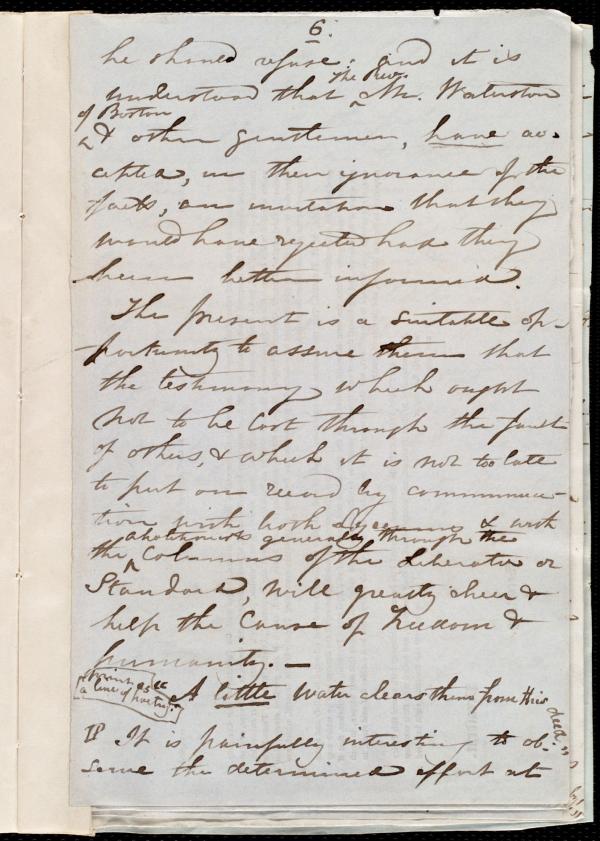 6.
he should refuse: and it is
the Rev.
understood that Mr. Waterston
of Boston
& other gentlemen, have ac-
cepted, in their ignorance of the
facts, an invitation that they
would have rejected had they
been better informed.
The present is a suitable op-
portunity to assure them that
the testimony which ought
not to be lost through the fault
of others, & which it is not too late
to put on record by communica-
tion with both Lyceums & with
abolitionists generally through the
the columns of the Liberator or
Standard, will greatly cheer &
help the Cause of Freedom &
humanity. —
print as
a line of poetry.
"A little water clears them from this
deed."
It is painfully interesting to ob-
serve the determined effort at